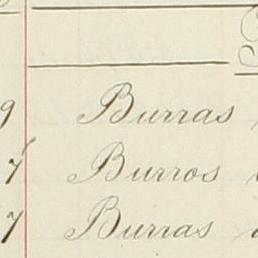 9 Burras
7 Burros
7 Burras